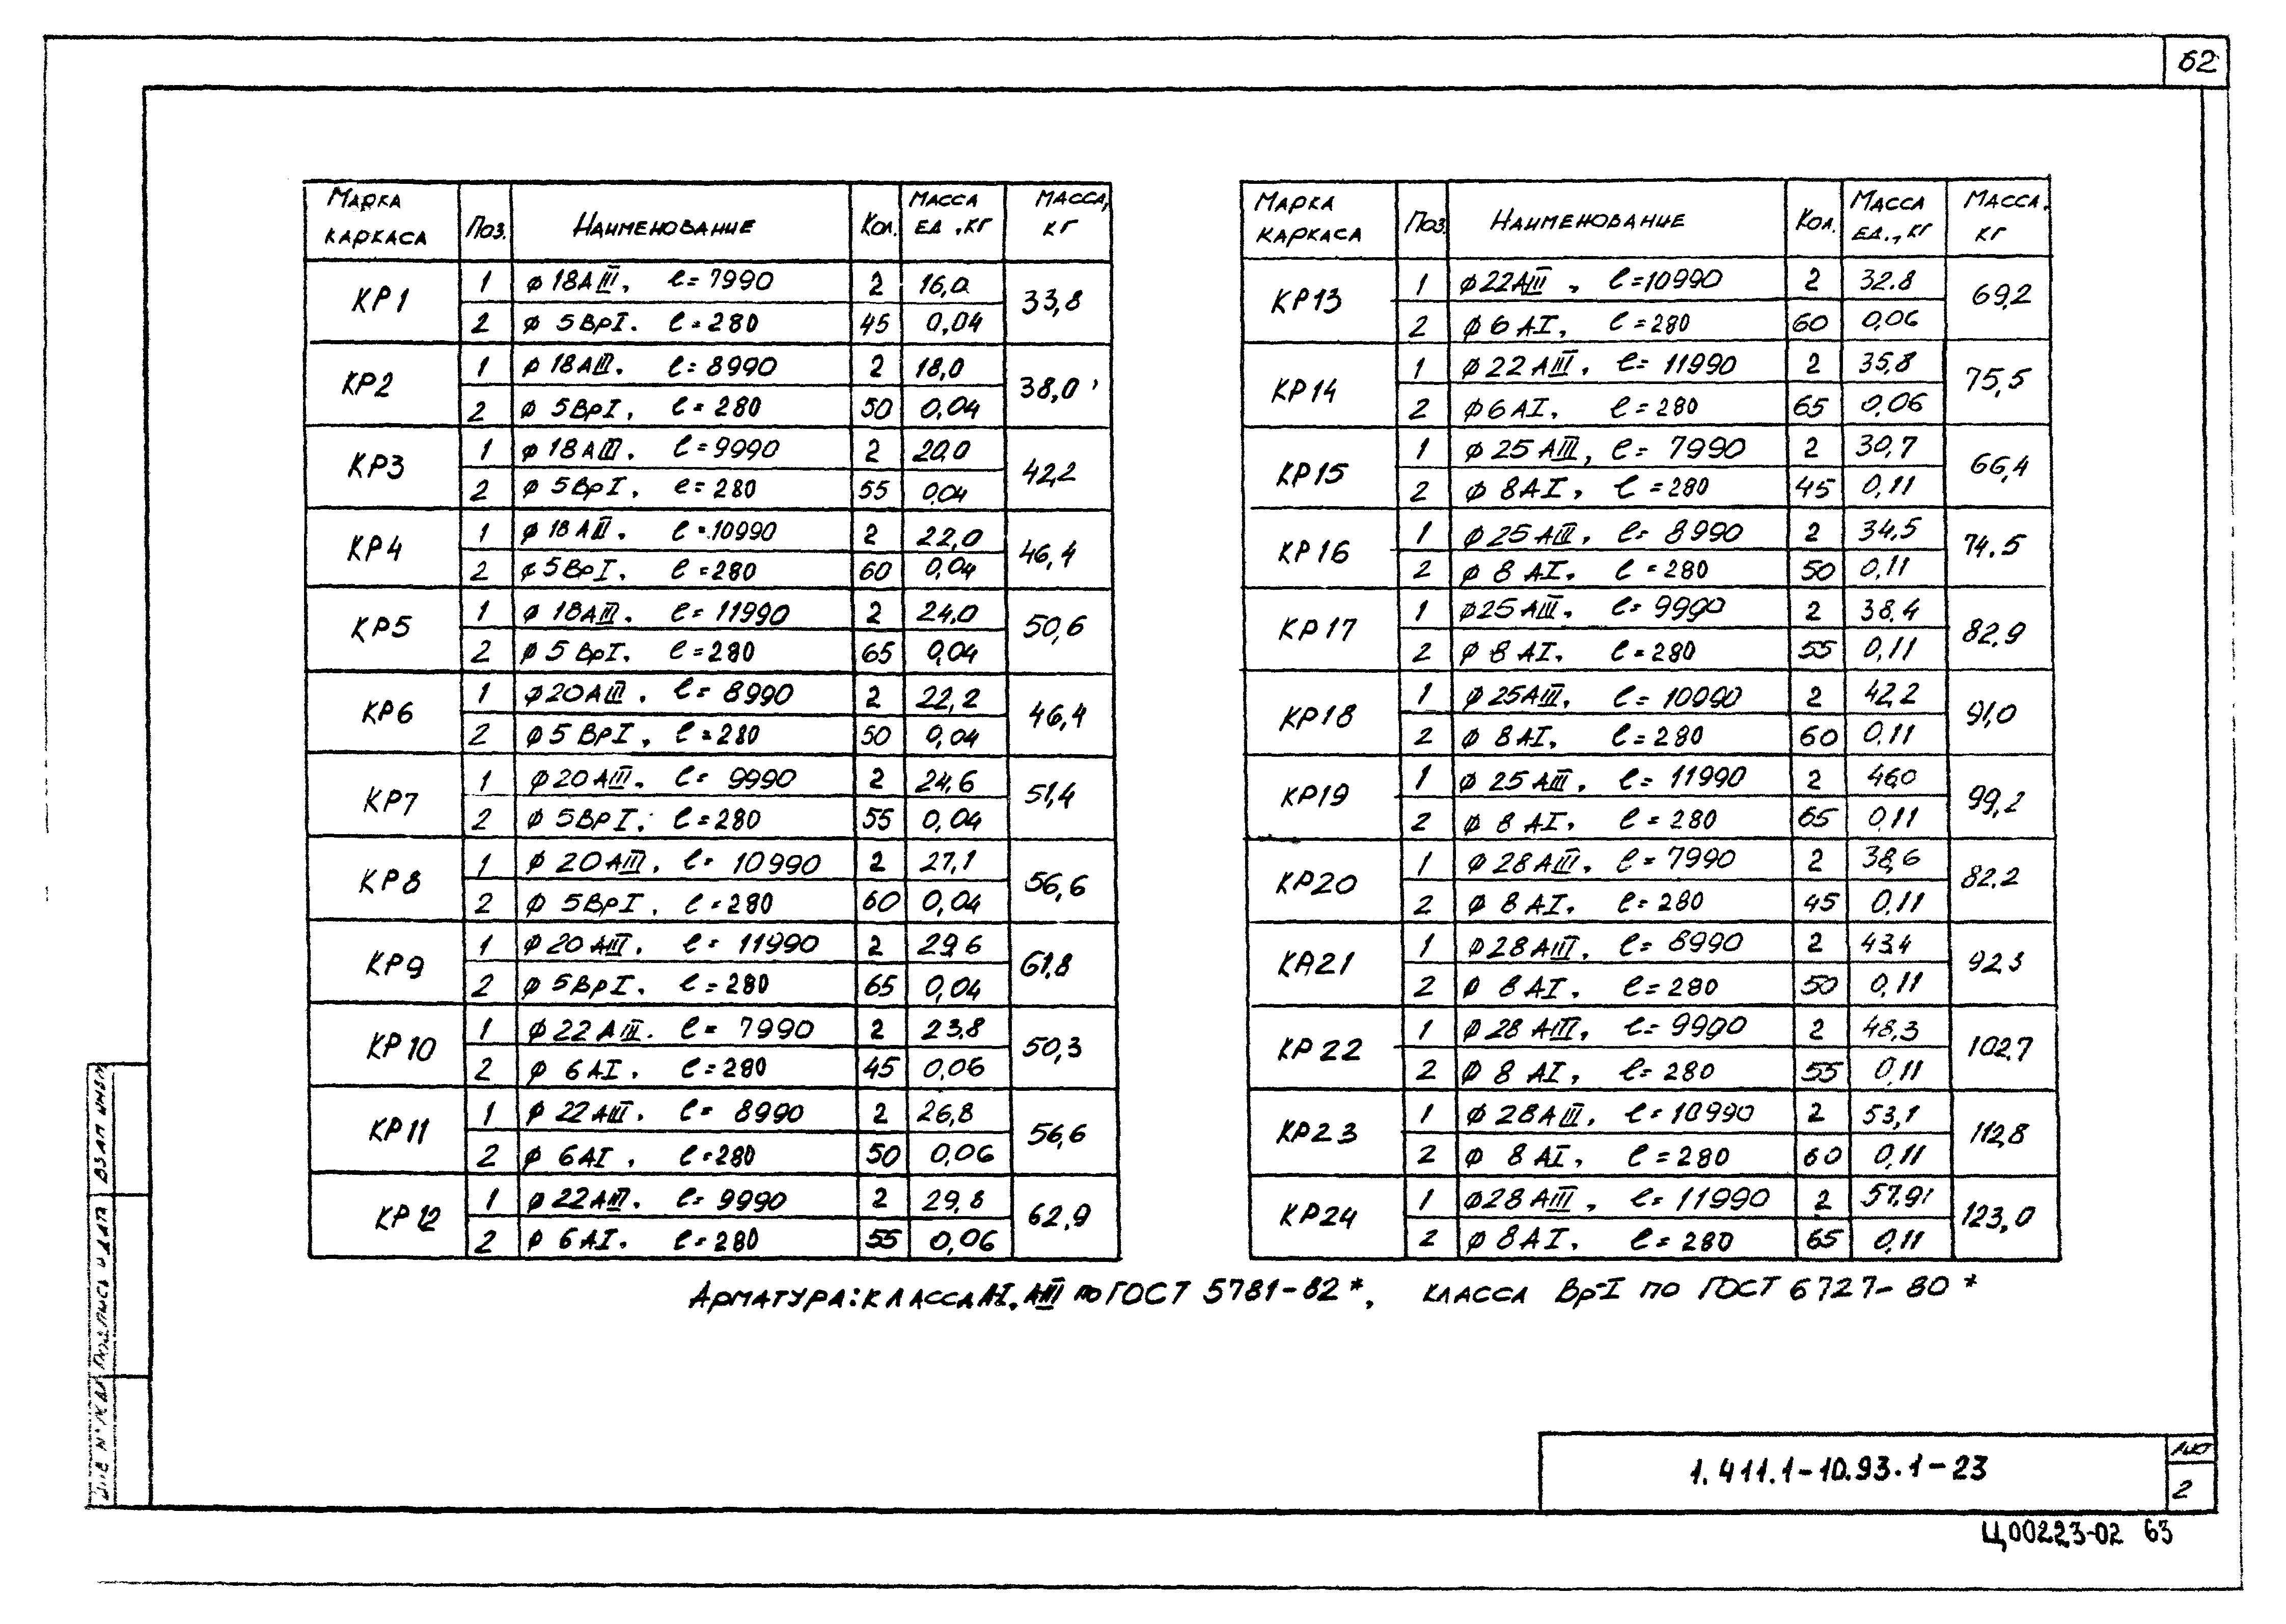 62
Марка каркаса | Поз. | Наименование | Кол. | Масса ед., кг | Масса, кг
КР1 | 1 | ϕ18АIII, ℓ=7990 | 2 | 16,0 | 33,8
2 | ϕ 5ВрI. ℓ=280 | 45 | 0,04
КР2 | 1 | ϕ 18АIII. ℓ=8990 | 2 | 18,0 | 38,0
2 | ϕ 5ВрI, ℓ=280 | 50 | 0,04
КР3 | 1 | ϕ18АIII. ℓ=9990 | 2 | 20,0 | 42,2
2 | ϕ 5ВрI, ℓ=280 | 55 | 0,04
КР4 | 1 | ϕ 18АIII. ℓ=10990 | 2 | 22,0 | 46,4
2 | ϕ5ВрI. ℓ=280 | 60 | 0,04
КР5 | 1 | ϕ 18АIII. ℓ=11990 | 2 | 24,0 | 50,6
2 | ϕ 5ВрI. ℓ=280 | 65 | 0,04
КР6 | 1 | ϕ20АIII. ℓ=8990 | 2 | 22,2 | 46,4
2 | ϕ5ВрI, ℓ=280 | 50 | 0,04
КР7 | 1 | ϕ20АIII. ℓ=9990 | 2 | 24,6 | 51,4
2 | ϕ 5ВрI. ℓ=280 | 55 | 0,04
КР8 | 1 | ϕ 20АIII. ℓ=10990 | 2 | 27,1 | 56,6
2 | ϕ 5ВрI. ℓ=280 | 60 | 0,04
КР9 | 1 | ϕ20АIII. ℓ=11990 | 2 | 29,6 | 61,8
2 | ϕ 5ВрI. ℓ=280 | 65 | 0,04
КР10 | 1 | ϕ22АIII. ℓ=7990 | 2 | 23,8 | 50,3
2 | ϕ 6АI. ℓ=280 | 45 | 0,06
КР11 | 1 | ϕ 22АIII. ℓ=8990 | 2 | 26,8 | 56,6
2 | ϕ 6АI. ℓ=280 | 50 | 0,06
КР12 | 1 | ϕ22АIII. ℓ=9990 | 2 | 29,8 | 62,9
2 | ϕ 6АI. ℓ=280 | 55 | 0,06
Марка каркаса | Поз. | Наименование | Кол. | Масса ед., кг | Масса, кг
КР13 | 1 | ϕ22АIII, ℓ=10990 | 2 | 32.8 | 69,2
2 | ϕ6АI, ℓ=280 | 60 | 0,06
КР14 | 1 | ϕ22АIII, ℓ=11990 | 2 | 35,8 | 75,5
2 | ϕ6АI, ℓ=280 | 65 | 0,06
КР15 | 1 | ϕ25АIII, ℓ=7990 | 2 | 30,7 | 66,4
2 | ϕ 8АI, ℓ=280 | 45 | 0,11
КР16 | 1 | ϕ25АIII, ℓ=8990 | 2 | 34,5 | 74.5
2 | ϕ 8АI, ℓ=280 | 50 | 0,11
КР17 | 1 | ϕ25АIII, ℓ=9990 | 2 | 38,4 | 82.9
2 | ϕ 8АI, ℓ=280 | 55 | 0,11
КР18 | 1 | ϕ25АIII, ℓ=10990 | 2 | 42,2 | 91,0
2 | ϕ 8АI, ℓ=280 | 60 | 0.11
КР19 | 1 | ϕ 25АIII, ℓ=11990 | 2 | 46,0 | 99,2
2 | ϕ 8АI, ℓ=280 | 65 | 0,11
КР20 | 1 | ϕ28АIII, ℓ=7990 | 2 | 38,6 | 82.2
2 | ϕ 8АI, ℓ=280 | 45 | 0,11
КА21 | 1 | ϕ28АIII, ℓ=8990 | 2 | 43,4 | 92,3
2 | ϕ 8АI, ℓ=280 | 50 | 0,11
КР22 | 1 | ϕ28АIII, ℓ=9900 | 2 | 48,3 | 102,7
2 | ϕ 8АI, ℓ=280 | 55 | 0,11
КР23 | 1 | ϕ28АIII, ℓ=10990 | 2 | 53,1 | 112,8
2 | ϕ 8АI, ℓ=280 | 60 | 0,11
КР24 | 1 | ϕ28АIII, ℓ=11990 | 2 | 57,91 | 123,0
2 | ϕ 8АI, ℓ=280 | 65 | 0,11
Арматура: класса АI, АIII по ГОСТ 5781-82*, класса Вр-I по ГОСТ 6727-80*
Взам инв
Подпись и дата
Инв №
1.411.1-10.93.1-23
Лист
2
Ц00223-02 63